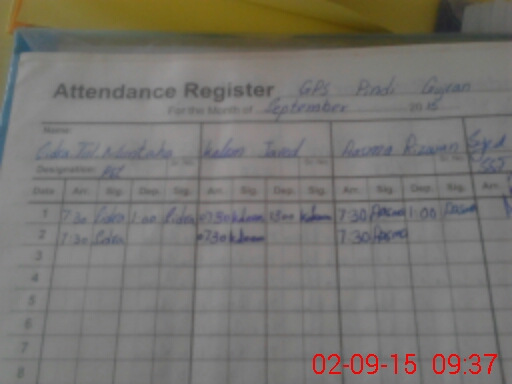 Attendance Register GPS Pindi Gujran
For the Month of September 2015
Name:
Sidra Tul Muntaha Kalsom Javed Aasma Rizwan Syed
Designation: PST SST
Date Arr. Sig. Dep. Sig. Arr. Sig. Dep. Sig. Arr. Sig. Dep. Sig. Arr.
1 7:30 Sidra 1:00 Sidra 0730 Kalsom 1300 Kalsom 7:30 Aasma 1:00 Aasma
2 7:30 Sidra 0730 Kalsom 7:30 Aasma
3
4
5
6
7
8
02-09-15 09:37